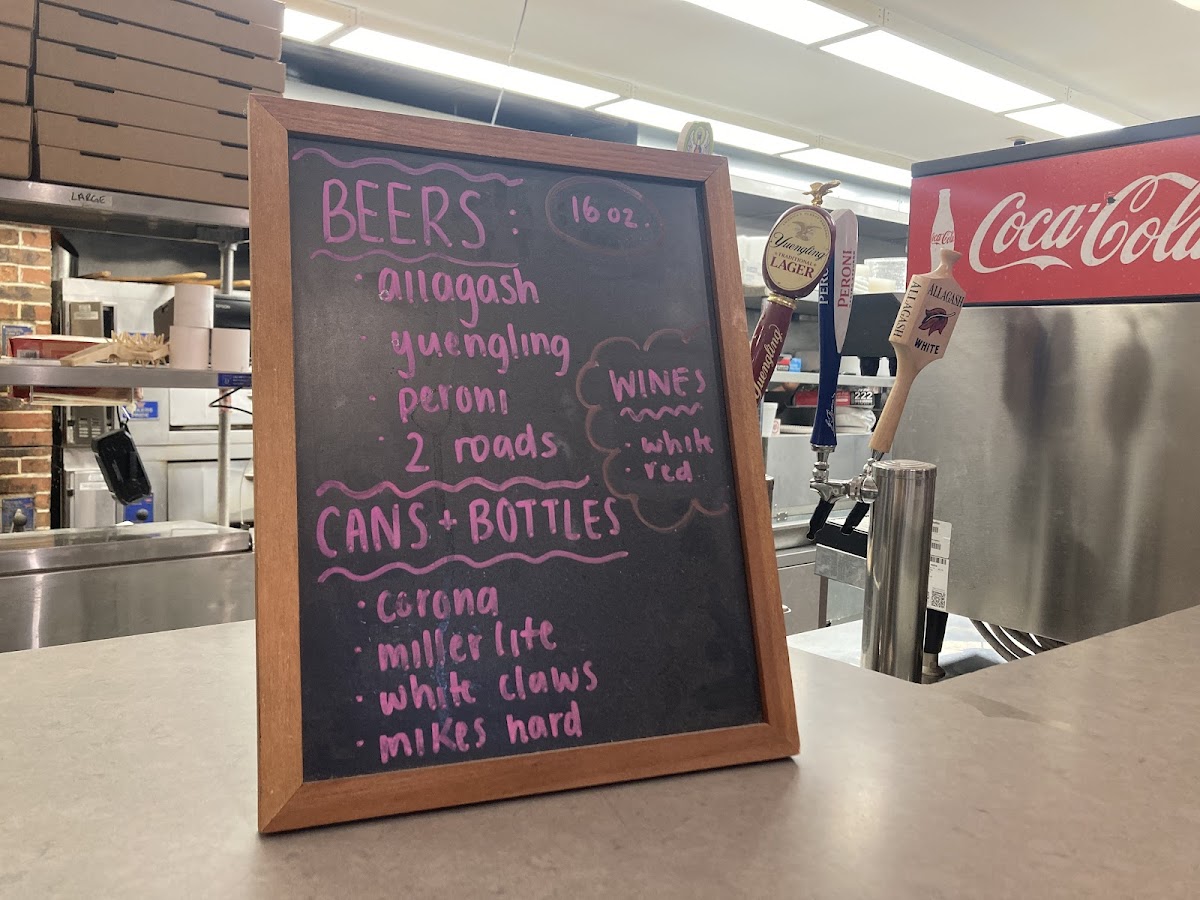 LARGE
BEERS :
16 oz.
· allagash
· yuengling
· peroni
· 2 roads
WINES
· white
· red
CANS + BOTTLES
· corona
· miller lite
· white claws
· mikes hard
Yuengling
TRADITIONAL
LAGER
Yuengling
PERONI
PERO
ALLAGASH
ALLAGASH
WHITE
Coca-Cola
Coca-Cola
222